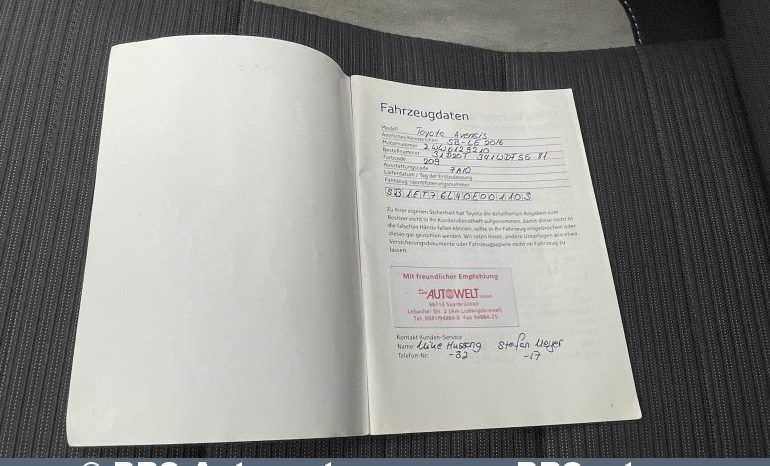 Fahrzeugdaten
Modell Toyota Avensis
Amtliches Kennzeichen SB-LE 2016
Motornummer 2WW0128210
Bestellnummer
Farbcode 209
Ausstattungscode 7A10
Lieferdatum / Tag der Erstzulassung
Fahrzeug-Identifizierungsnummer
Zu Ihrer eigenen Sicherheit hat Toyota die detaillierten Angaben zum
Besitzer nicht in Ihr Kundendienstheft aufgenommen, damit diese nicht in
die falschen Hände fallen können, sollte in Ihr Fahrzeug eingebrochen oder
dieses gar gestohlen werden. Wir raten Ihnen, andere Unterlagen wie etwa
Versicherungsdokumente oder Fahrzeugpapiere nicht im Fahrzeug zu
lassen.
Mit freundlicher Empfehlung
AUTOWELT
66113 Saarbrücken
Lebacher Str. 2 (Am Ludwigskreisel)
Tel. 0681/94884-0 Fax 94884-25
Kontakt Kunden-Service
Name: Mike Hussong Stefan Meyer
Telefon-Nr: -32 -17